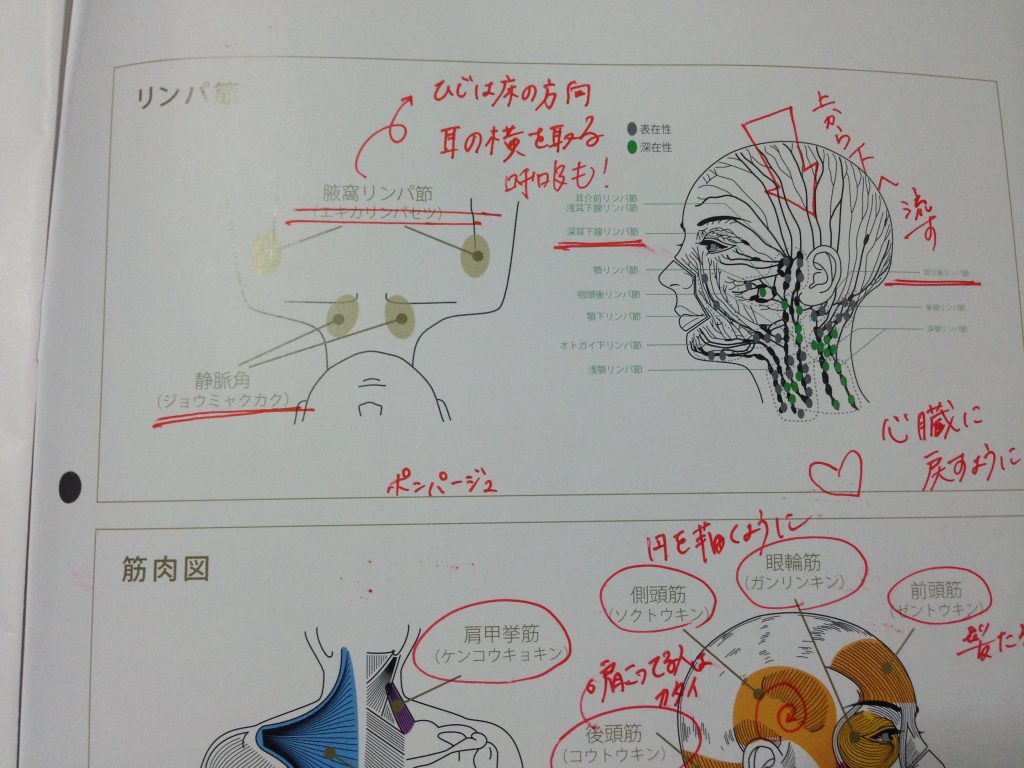 リンパ節
ひじは床の方向
耳の横を取る
呼吸も!
腋窩リンパ節
(エキカリンパセツ)
静脈角
(ジョウミャクカク)
ポンパージュ
表在性
深在性
上から下へ
流す
耳介前リンパ節
浅耳下腺リンパ節
深耳下腺リンパ節
顎リンパ節
咽頭後リンパ節
顎下リンパ節
オトガイ下リンパ節
浅頸リンパ節
耳介後リンパ節
後頭リンパ節
深頸リンパ節
心臓に
戻すように
筋肉図
肩甲挙筋
(ケンコウキョキン)
円を描くように
側頭筋
(ソクトウキン)
眼輪筋
(ガンリンキン)
前頭筋
(ゼントウキン)
肩こってる人は
カタイ
後頭筋
(コウトウキン)